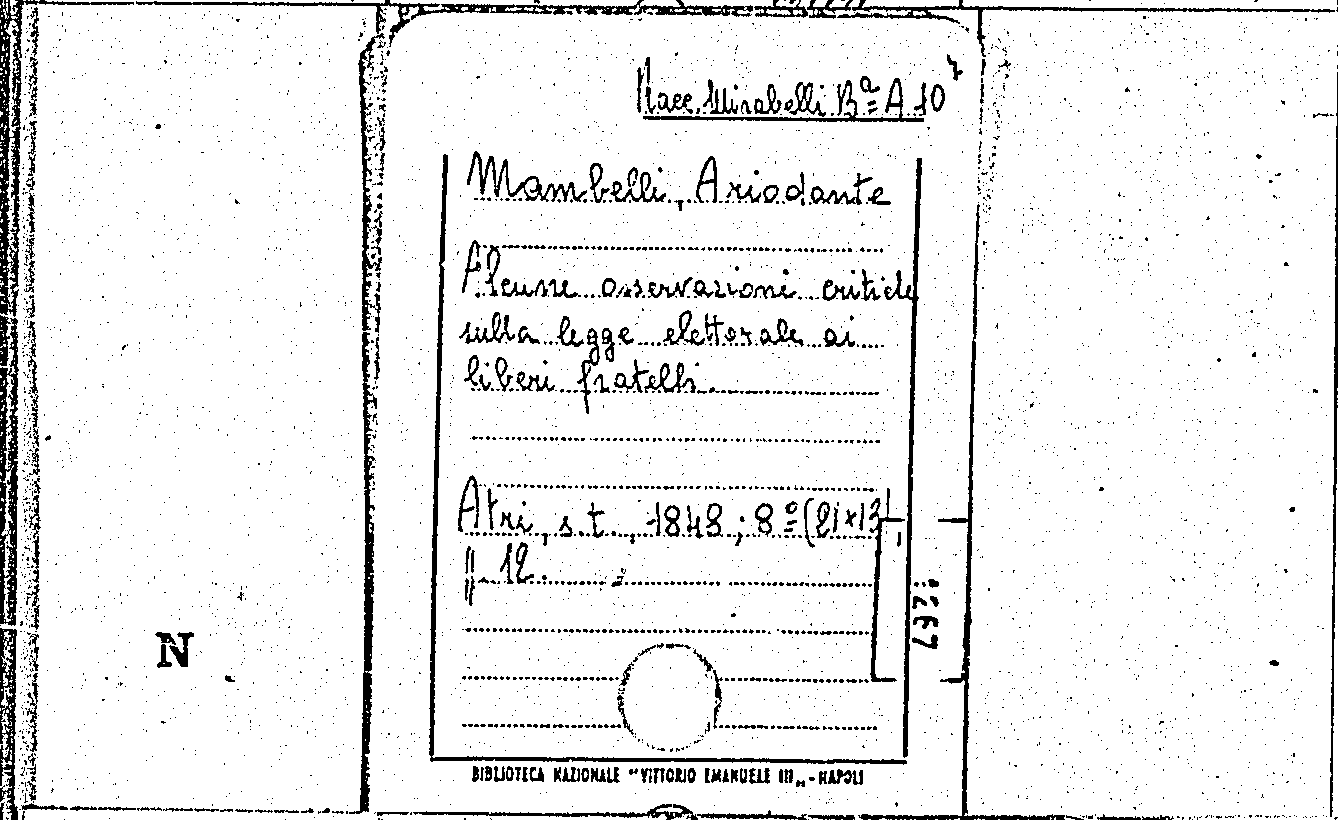 Racc. Mirabelli Bª A 10⁷
Mambelli, Ariodante
Alcune osservazioni critiche
sulla legge elettorale ai
liberi fratelli.
Atri, s.t., 1848; 8º (21x13)
ff. 12.
N
BIBLIOTECA NAZIONALE "VITTORIO EMANUELE III„ - NAPOLI